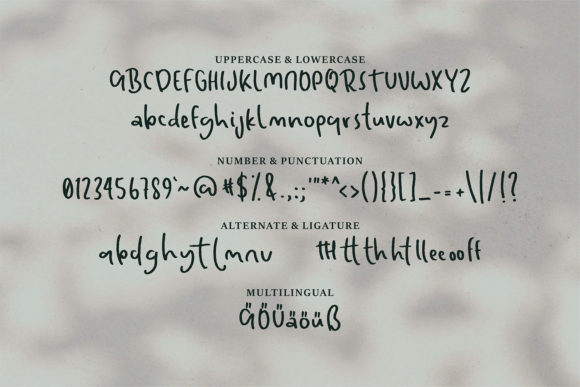 UPPERCASE & LOWERCASE
ABCDEFGHIJKLMNOPQRSTUVWXYZ
abcdefghijklmnopqrstuvwxyz
NUMBER & PUNCTUATION
0123456789`~@#$%&.,:;'"*^<>(){}[]_-=+\|/!?
ALTERNATE & LIGATURE
abdghytlmnu ttHttthhtlleeooff
MULTILINGUAL
ÄÖÜäöüß